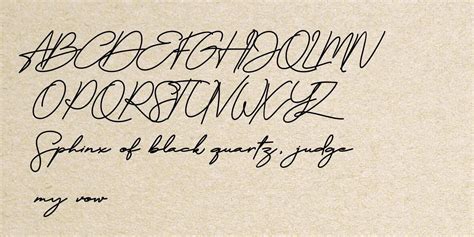 ABCDEFGHIJKLMN
OPQRSTUVWXYZ
Sphinx of black quartz, judge
my vow